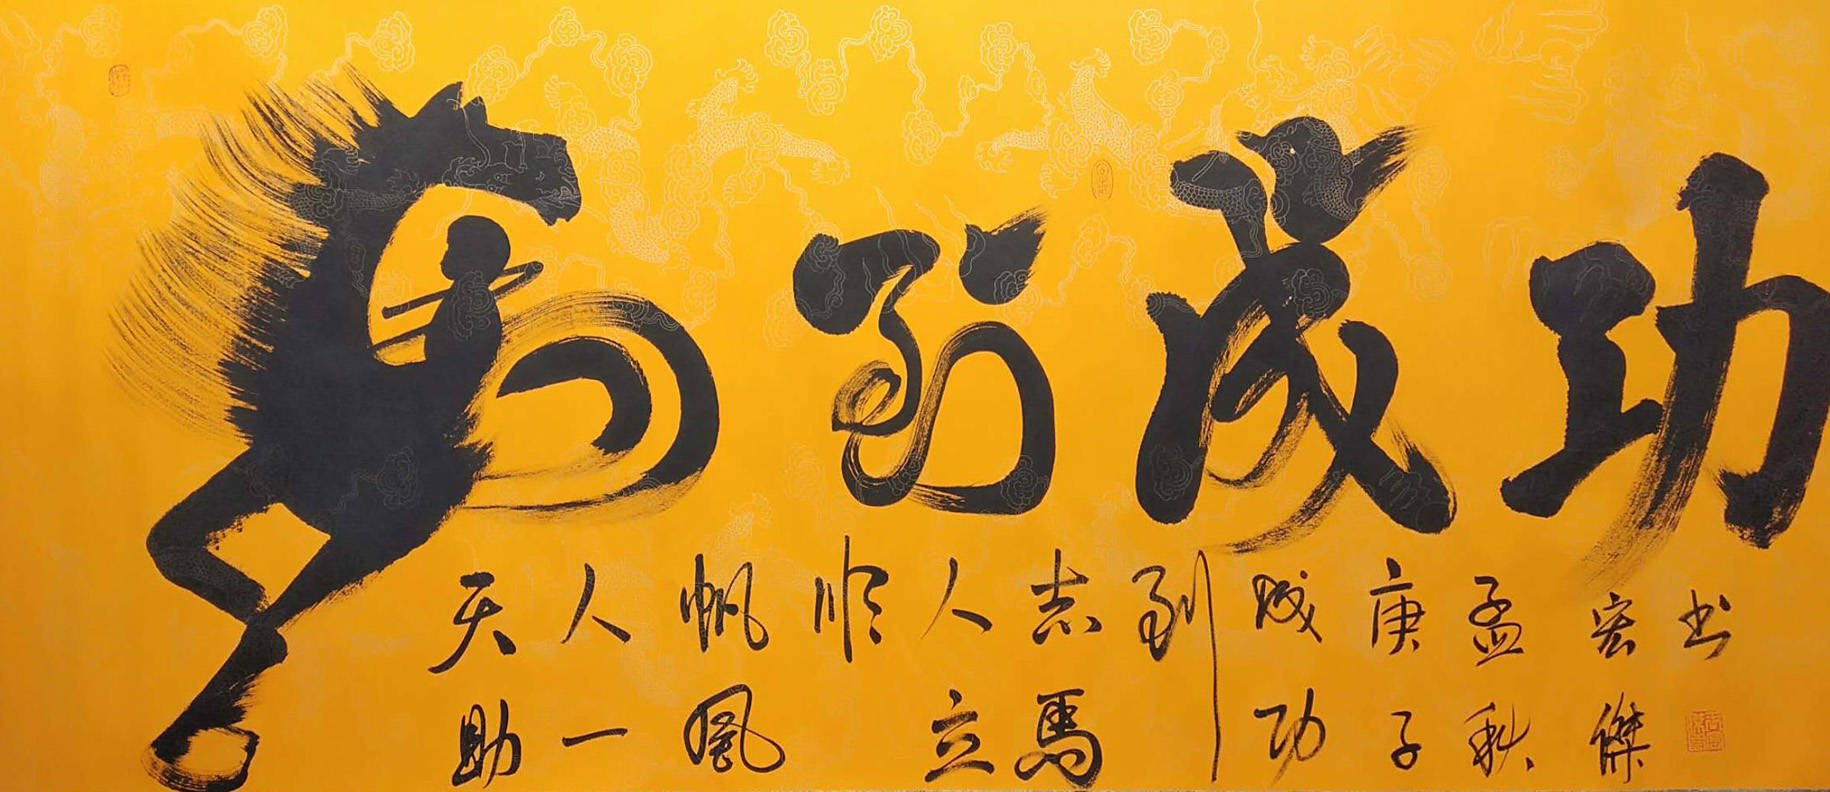 马到成功
天助
人一
帆風
順
人立
志馬
到
成功
庚子
孟秋
宏傑
书